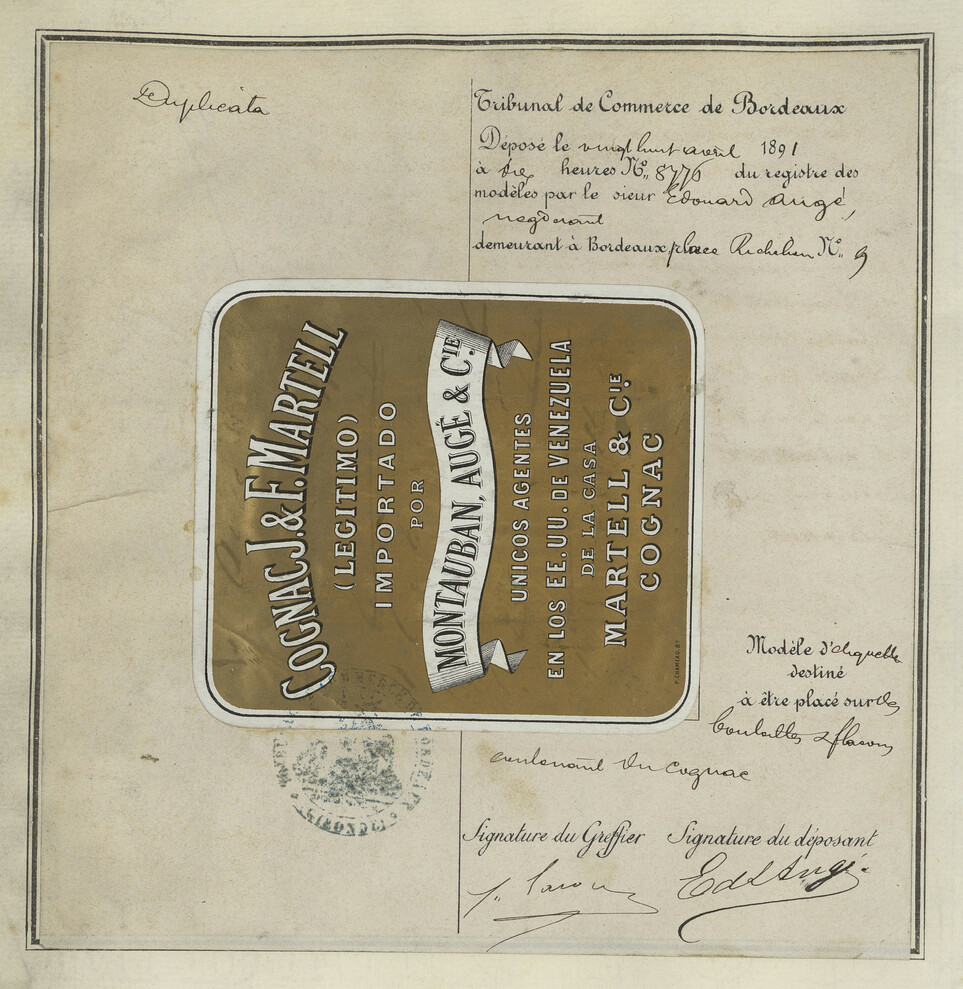 Duplicata
Tribunal de Commerce de Bordeaux
Déposé le vingt huit avril 1891
à dix heures No. 8776 du registre des
modèles par le sieur Edouard Augé,
négociant
demeurant à Bordeaux, place Richelieu No. 9
COGNAC J. & F. MARTELL
(LEGITIMO)
IMPORTADO
POR
MONTAUBAN, AUGÉ & CIE.
UNICOS AGENTES
EN LOS EE. UU. DE VENEZUELA
DE LA CASA
MARTELL & CIE.
COGNAC
Modèle d'étiquette
destiné
à être placé sur des
bouteilles & flacons
contenant du cognac
GIRONDE
Signature du Greffier Signature du déposant
Ed Augé